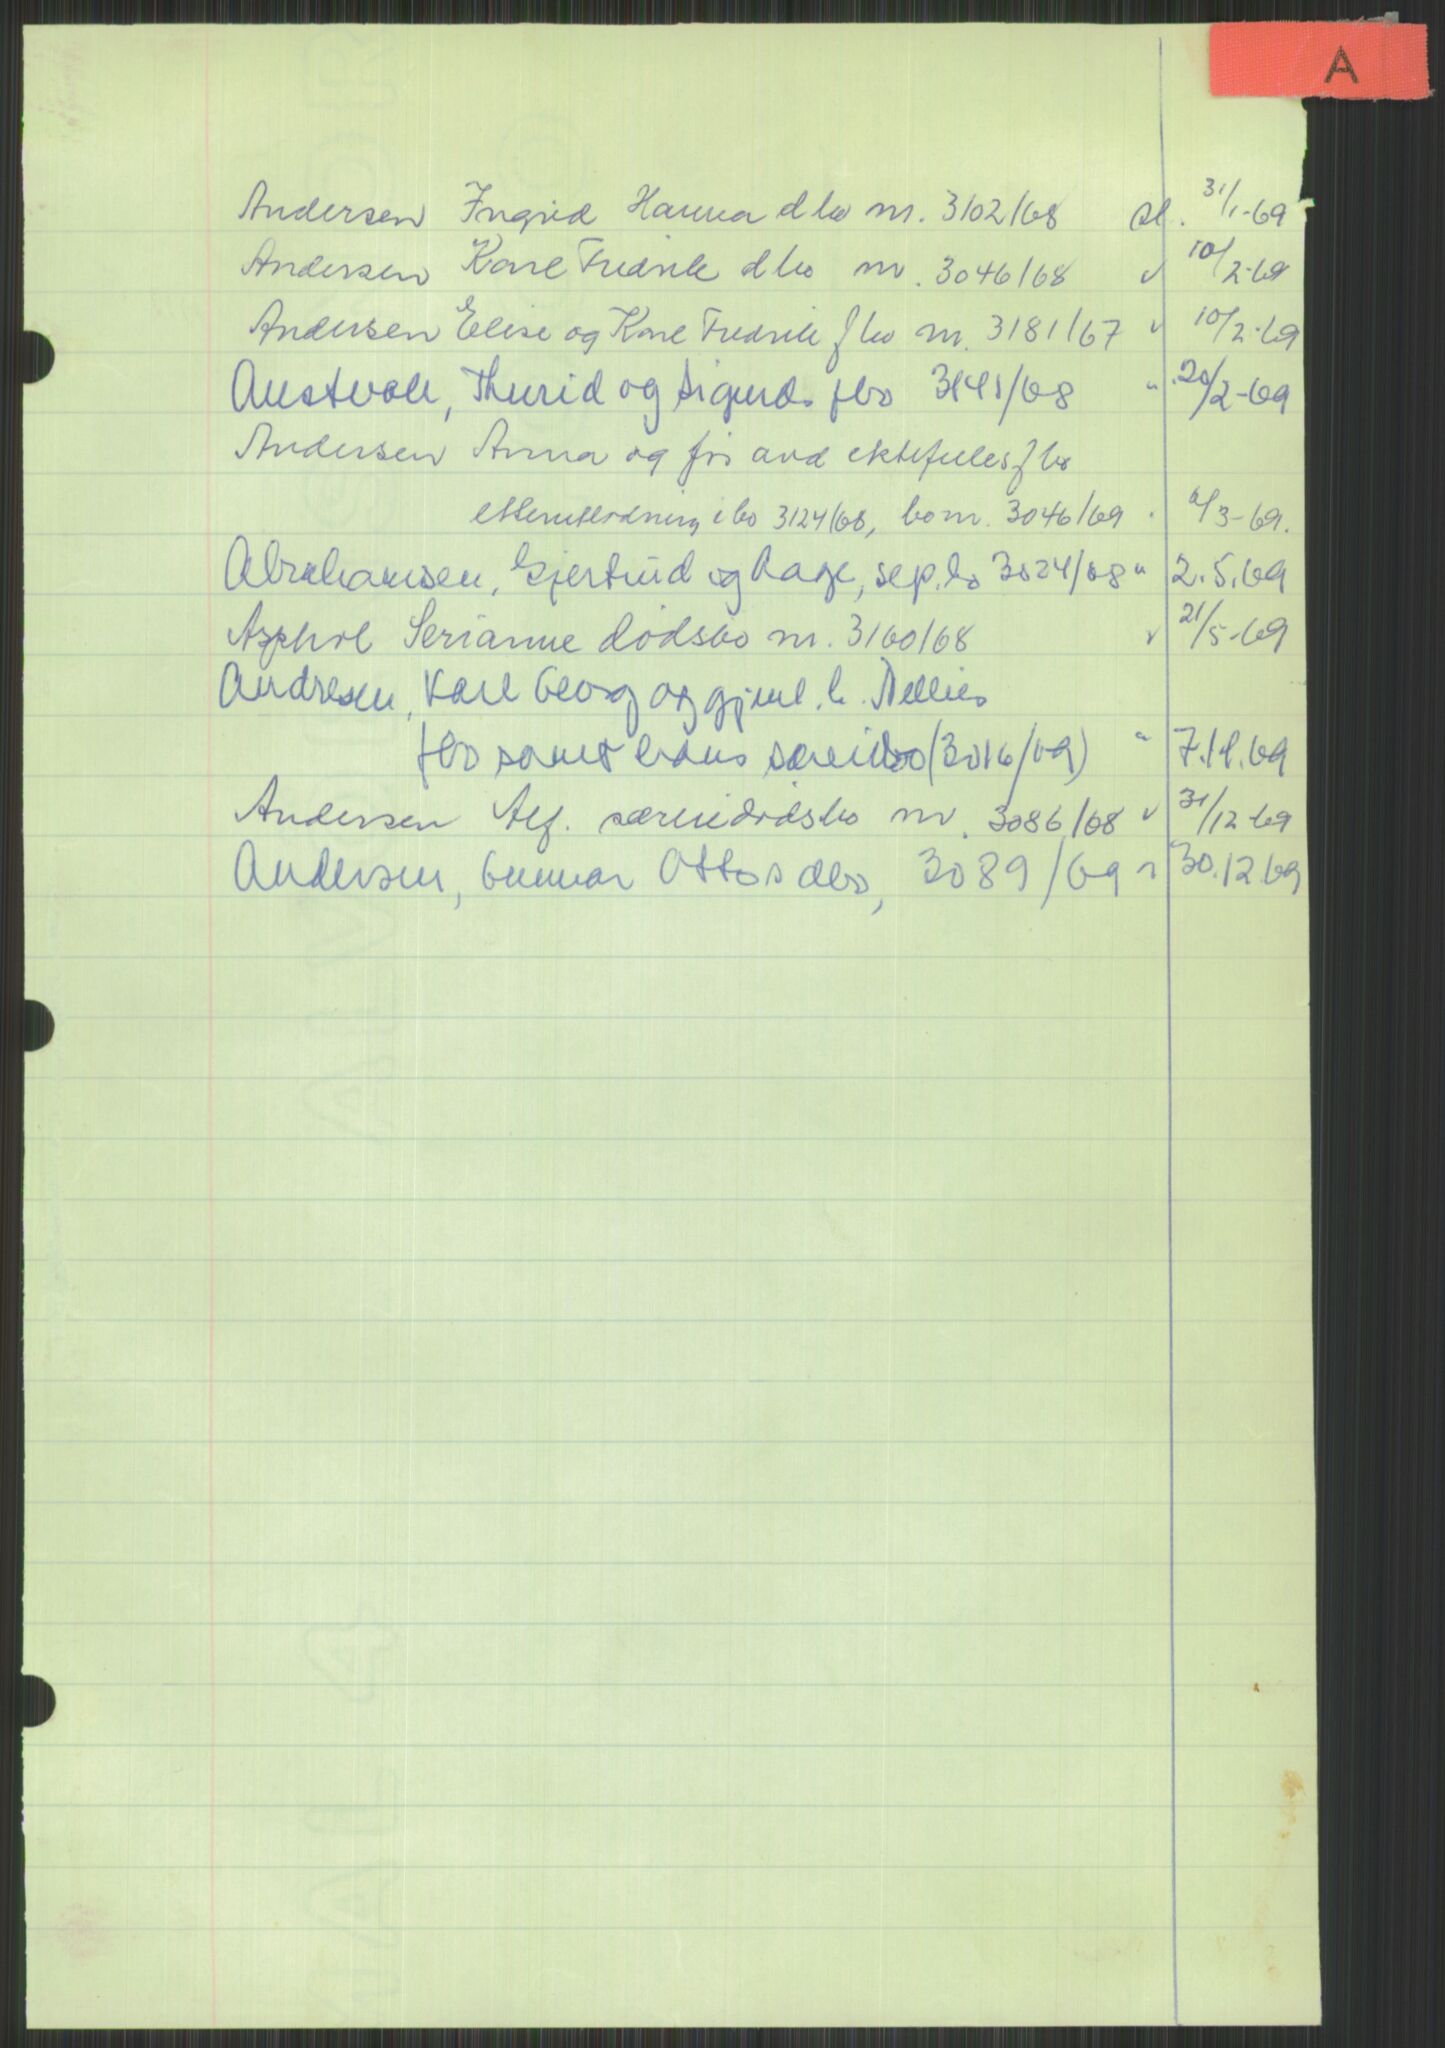 A
Andersen Ingrid Hanna dbo nr. 3102/68 sl. 31/1-69
Andersen Karl Fredrik dbo nr. 3046/68 " 10/2-69
Andersen Elise og Karl Fredrik fbo nr. 3181/67 " 10/2-69
Austvoll, Thurid og Sigurds fbo 3141/68 " 20/2-69
Andersen Anna og føravd ektefelles fbo
etterutlodning i bo 3124/68, bo nr. 3046/69 " /3-69.
Abrahamsen, Gjertrud og Aage, sep.bo 3024/68 " 2.5.69
Asphol Serianne dødsbo nr. 3160/68 " 21/5-69
Andresen, Karl Georg og gjenl. h. Nellies
fbo samt hans særeiebo (3016/69) " 7.11.69
Andersen Alf. særeiedødsbo nr. 3086/68 " 31/12-69
Andersen, Gunnar Ottos dbo, 3089/69 " 30.12.69